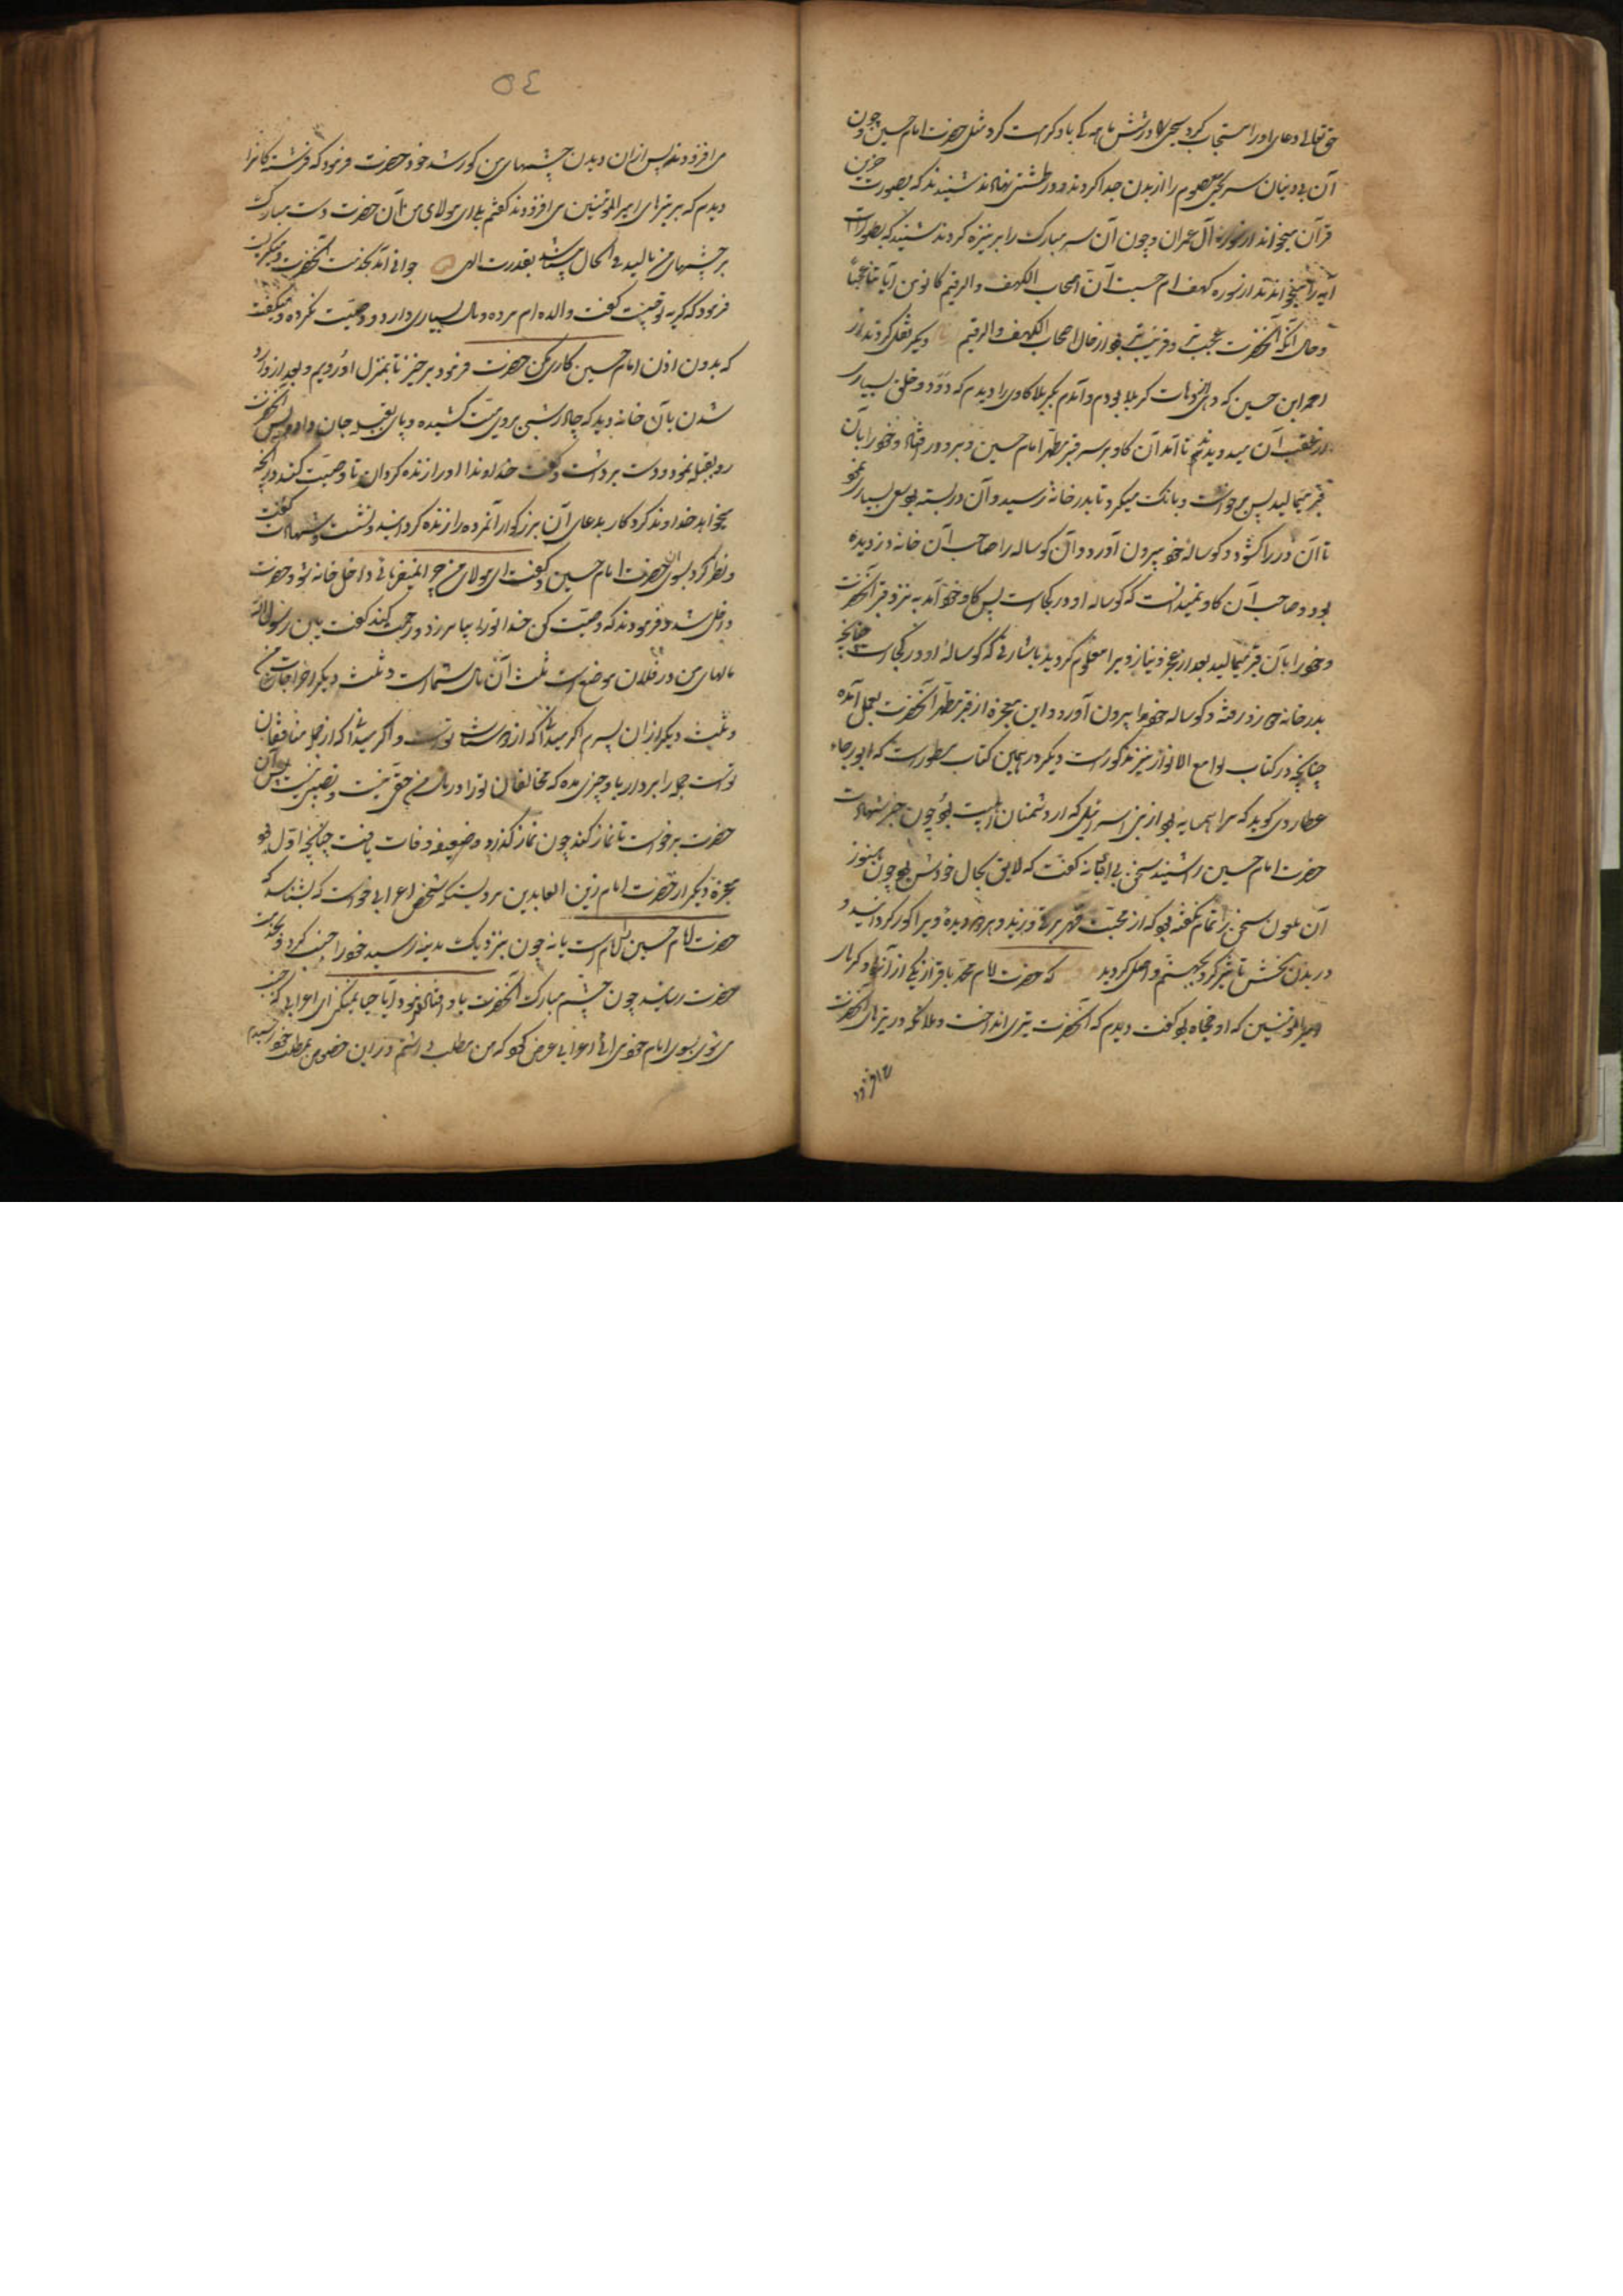 حق تعالی دعای او را مستجاب کرد یحیی را در شش ماهه کی باو کرامت کرد مثل حضرت امام حسین چون
آن بی دینان سر یحیی معصوم را از بدن جدا کردند و در طشتی نهادند شنیدند که بصورت حزین
قرآن میخواند از سوره آل عمران و چون آن سر مبارک را بر نیزه کردند شنیدند که
آیه را میخواندند از سوره کهف ام حسبت ان اصحاب الکهف والرقیم کانوا من آیاتنا عجبا
و حال آنکه آنحضرت عجیب تر و غریب تر بود از حال اصحاب الکهف والرقیم دیگر نقل کردند از
احمد ابن حسین که در کربلا بودم و آمدم بکربلا گاوی را دیدم که میدود و خلق بسیاری
از عقب آن میدویدند تا آمد آن گاو بر سر قبر مطهر امام حسین و بر رو در افتاد و خود را بآن
قبر میمالید پس برخواست و بانک میکرد تا بدر خانه رسید و آن در بسته بود سعی بسیار نمود
تا آن در را کشود و کوساله خود بیرون آورد و آن کوساله را صاحب آن خانه دزدیده
بود و صاحب آن گاو نمیدانست که کوساله او در کجاست پس گاو خود آمد به نزد قبر آنحضرت
و خود را بآن قبر میمالید بعد از عجز و نیاز ویرا معلوم گردید باشارتی که کوساله او در کجاست چنانچه
بدر خانه دزد رفته و کوساله خود را بیرون آورد و این معجزه از قبر مطهر آنحضرت بعمل آمده
چنانچه در کتاب لوامع الانوار نیز مذکور است دیگر در همین کتاب مسطور است که ابو رجاء
عطاردی کوید که مرا همسایه بود از بنی اسرائیل که از دشمنان اهلبیت بود چون خبر شهادت
حضرت امام حسین را شنید سخن بی ادبانه گفت که لایق بحال خودش بود چون هنوز
آن ملعون سخن را تمام نگفته بود که از قهر وزید و هر دو دیده ویرا کور گردانید و
در بدن نحسش تاثیر کرد بجهنم واصل گردید که حضرت امام محمد باقر از یکی از آنها در کربلای
امیرالمؤمنین که او بود گفت دیدم که آنحضرت تیری انداخت و ملائکه در تیرهای آنحضرت
می افزود
٥٤
می افزودند پس از آن دیدن چشمهای من کور شد خود حضرت فرمود که فرشتگان را
دیدم که بر تیرهای امیرالمؤمنین می افزودند گفتم بلی ای مولای من آن حضرت دست مبارک
بر چشمهای من مالید فی الحال بینا شد بقدرت الهی جوانی آمد بخدمت آنحضرت و میکریست
فرمود که گریه تو چیست گفت والده ام مرده و مال بسیاری دارد و وصیت نکرده و میگفت
که بدون اذن امام حسین کاری مکن حضرت فرمود برخیز تا بمنزل او رویم و بعد از وارد
شدن بآن خانه دید که چادر شبی بر روی میت کشیده و پای بقبله جان داده پس آنحضرت
رو بقبله نمود و دست برداشت و گفت خداوندا او را زنده گردان تا وصیت کند در آنچه
بخواهد خداوند کردکار بدعای آن بزرگوار آنمرده را زنده گردانید و نشست و شهادت گفت
و نظر کرد بسوی آنحضرت امام حسین و گفت ای مولای من داخل خانه شو حضرت
داخل شد و فرمودند که وصیت کن خدا تو را بیامرزد و رحمت کند گفت یابن رسول الله
مالهای من در فلان موضع است ثلث آن مال شما است و ثلث دیگر اخراجات من
و ثلث دیگر از آن پسرم اگر میدانی که از دوستان تو است و اگر میدانی که از جمله منافقان
تو است جمله را بردار و باو چیزی مده که مخالفان تو را در مال من حقی نیست و نصیبی نیست پس آن
حضرت برخواست تا نماز کند چون نماز گذارد ضعیفه وفات یافت چنانچه اول بود
معجزه دیگر از حضرت امام زین العابدین مرویست که شخص اعرابی خواست که بشناسد که
حضرت امام حسین امام است یا نه چون بنزدیک مدینه رسید خود را جنب کرد و بخدمت
حضرت رسید چون چشم مبارک آنحضرت باو افتاد فرمود آیا حیا نمیکنی ای اعرابی که جنب
می شوی بسوی امام خود می آئی اعرابی عرض کرد که من مطلبی داشتم در این خصوص بمطلب خود رسیدم